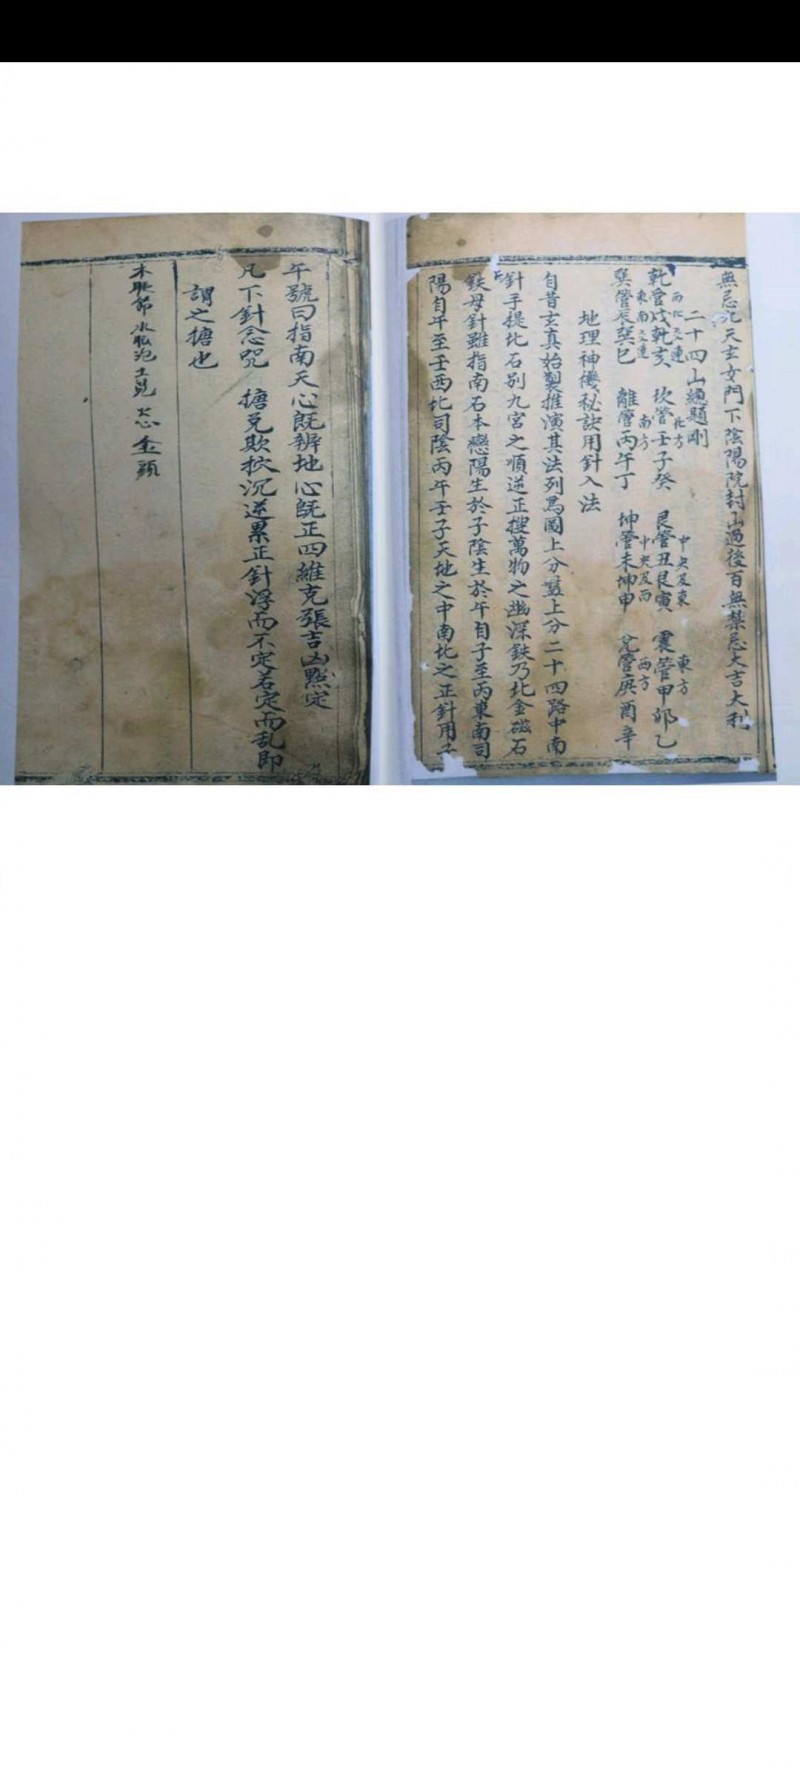 無忌九天玄女門下陰陽院封山過後百無禁忌大吉大利
二十四山總題剛
西北之連 北方 中央及東 東方
乾管戌乾亥 坎管壬子癸 艮管丑艮寅 震管甲卯乙
東南之連 南方 中央及西 西方
巽管辰巽巳 離管丙午丁 坤管未坤申 兌管庚酉辛
地理神機秘訣用針入法
自昔玄真始製推演其法列為圖上分盤上分二十四路中南
針手提北石別九宮之順逆正搜萬物之幽深鉄乃北金磁石
鉄母針雖指南石本戀陽生於子陰生於午自子至丙東南司
陽自午至壬西北司陰丙午壬子天地之中南北之正針用子
午號曰指南天心既辨地心既正四維克張吉凶黙定
凡下針念咒 搪兌欺 沉逆累正針浮而不定若定而乱即
謂之搪也
木 節 水 泡 土 金頭